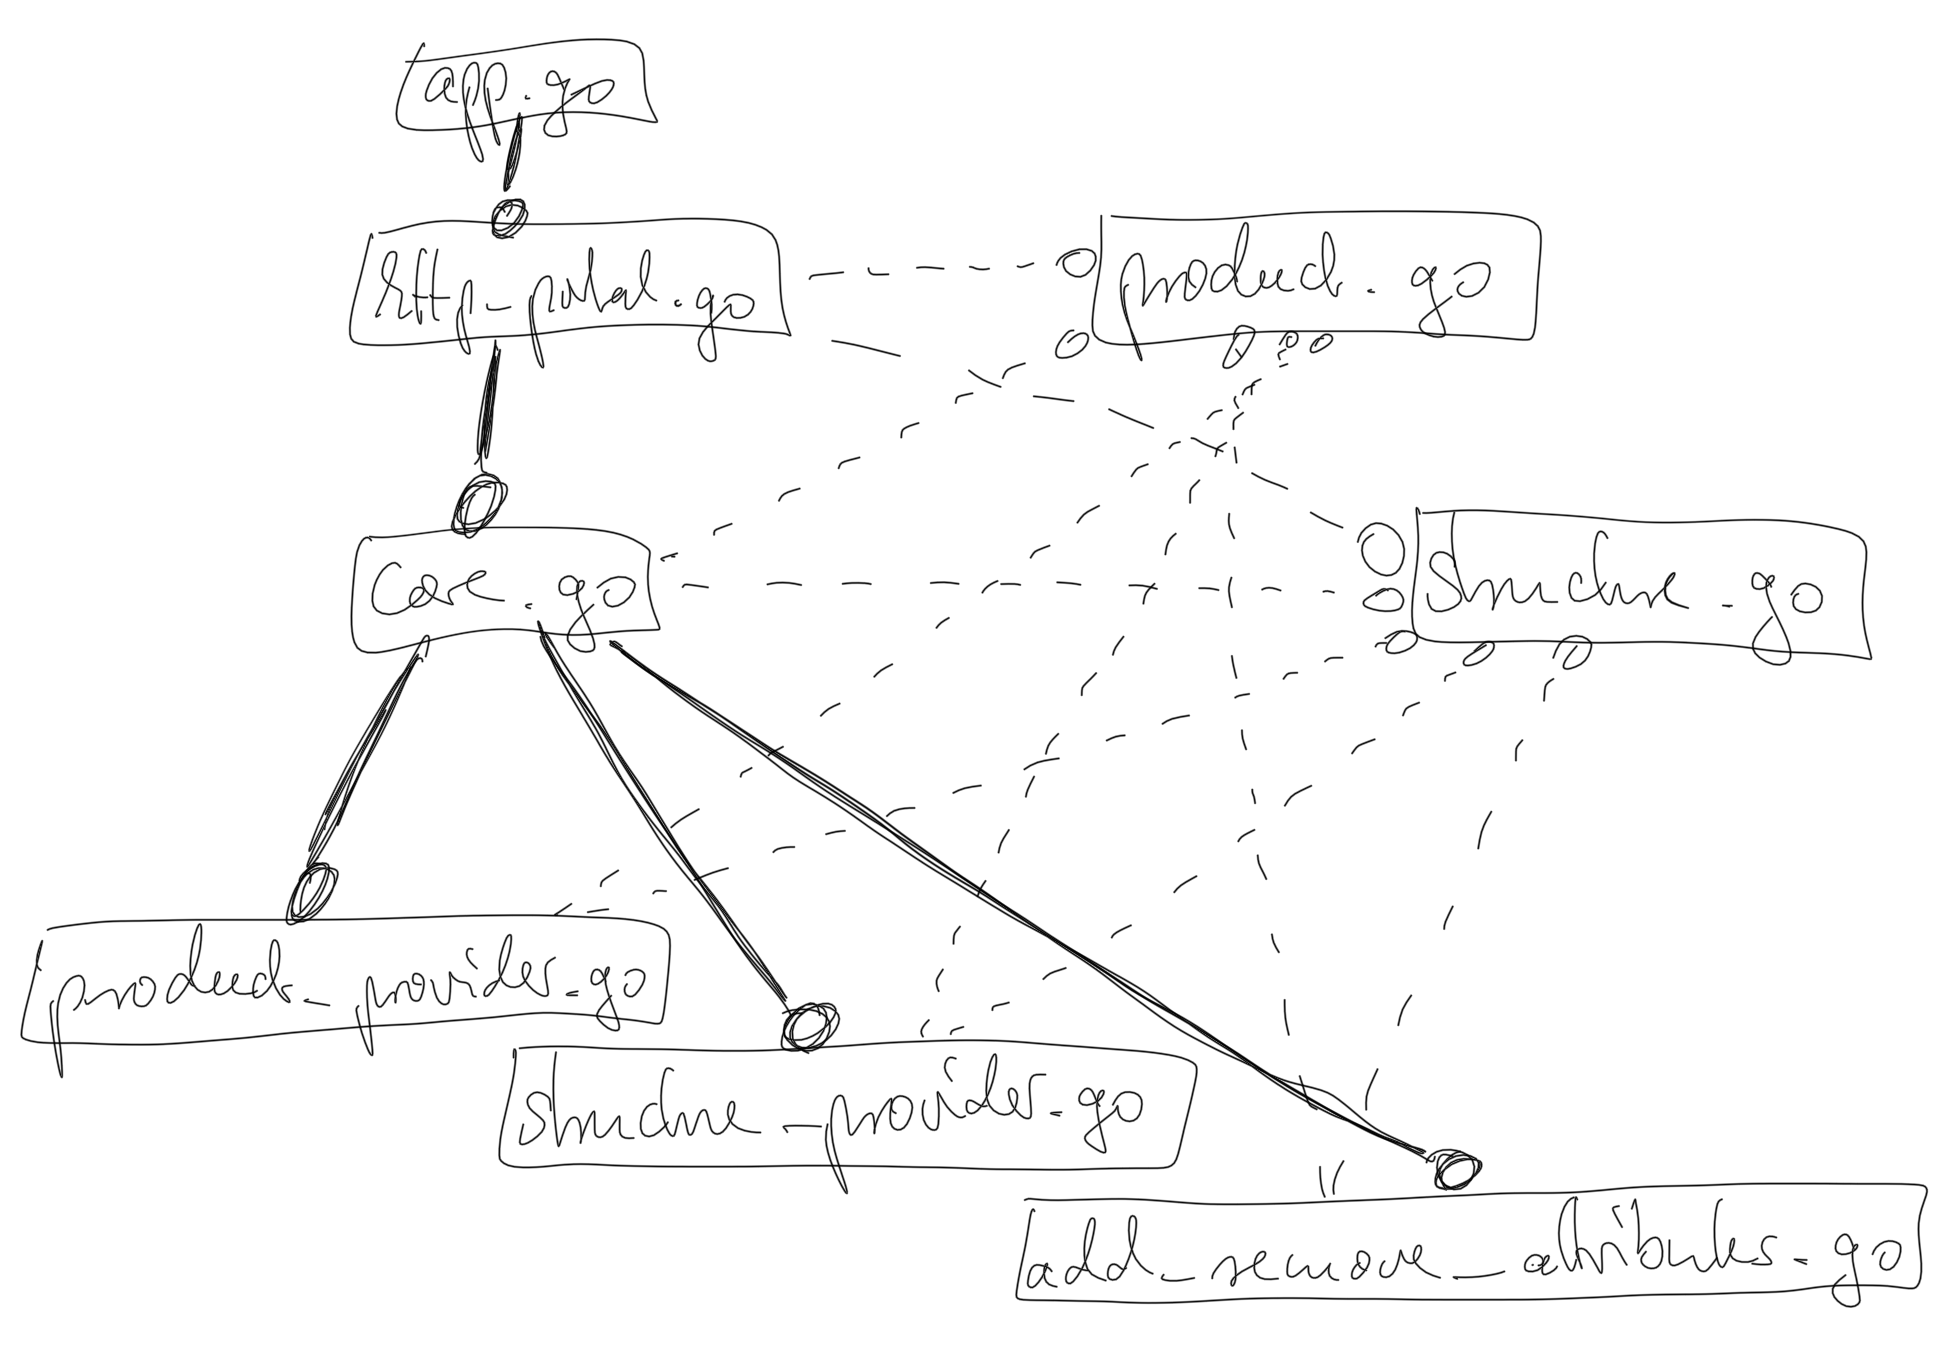 app.go
http_portal.go
product.go
core.go
structure.go
product_provider.go
structure_provider.go
add_remove_attributes.go